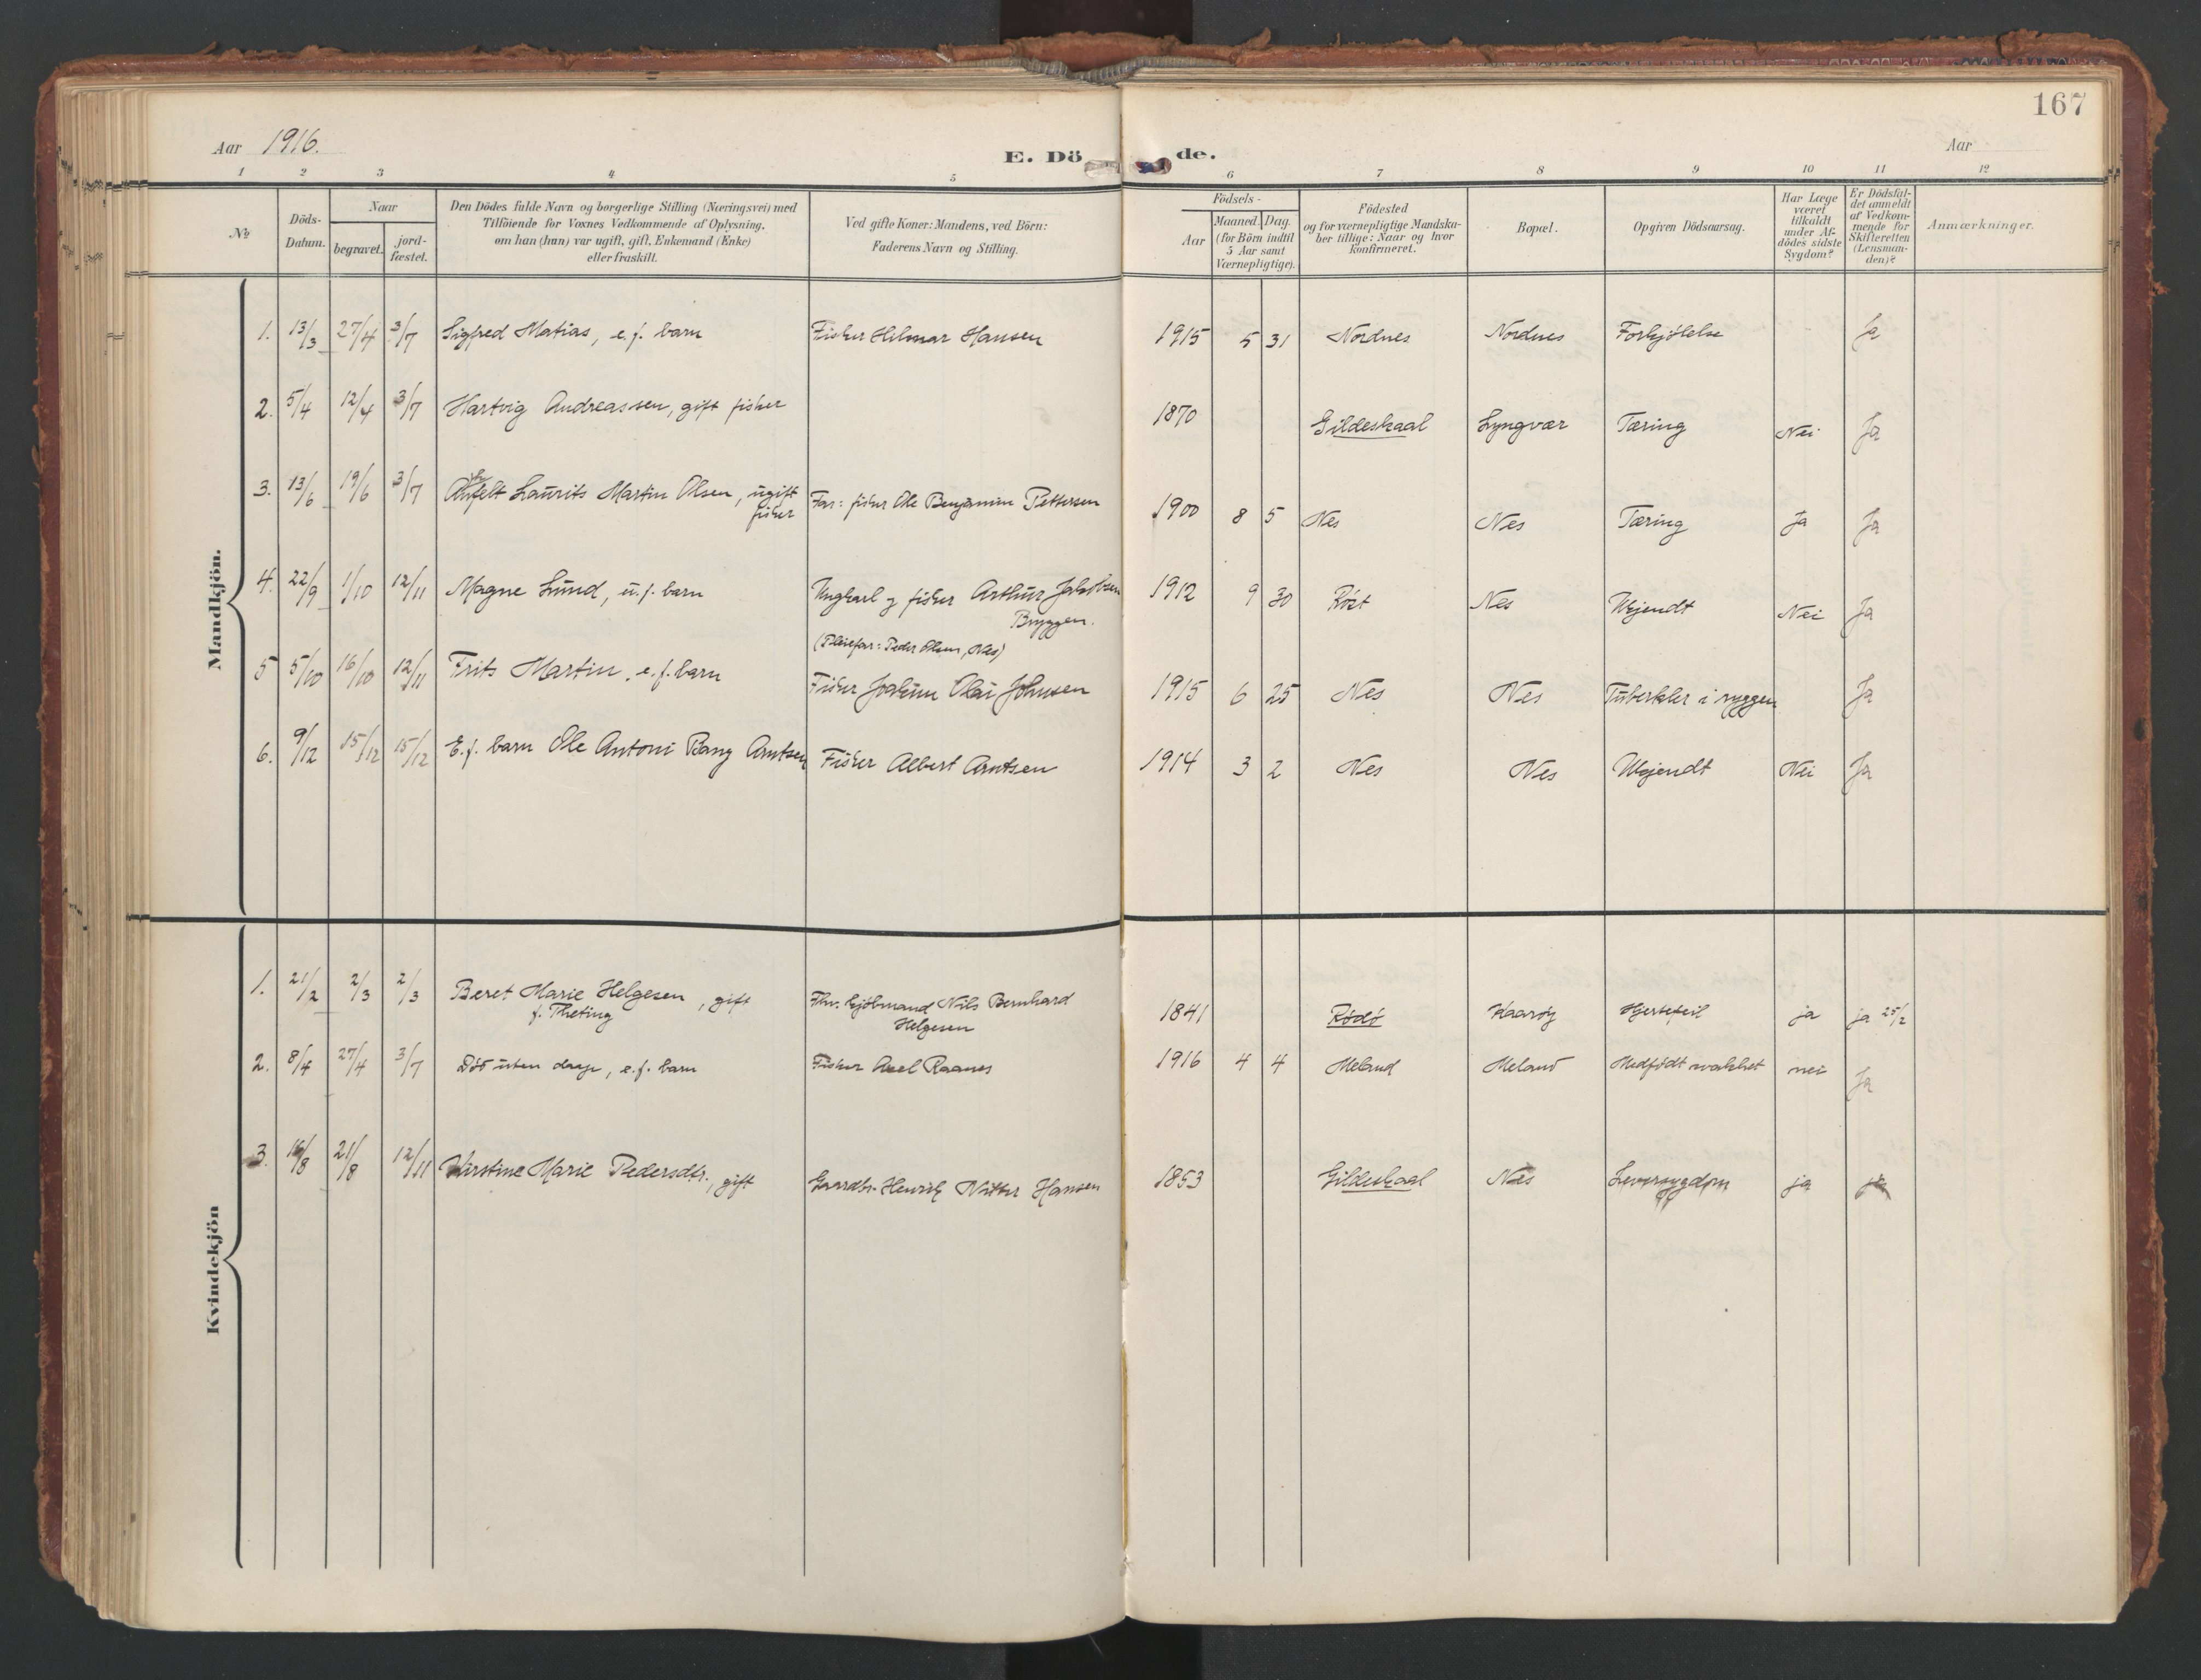 167
Aar 1916.
E. Dö de.
Aar
1 2 3 4 5 6 7 8 9 10 11 12
No
Döds-Datum.
Naar
begravet.
jord-fæstet.
Den Dödes fulde Navn og borgerlige Stilling (Næringsvei) med
Tilföiende for Voxnes Vedkommende af Oplysning.
om han (hun) var ugift, gift, Enkemand (Enke)
eller fraskilt.
Ved gifte Koner: Mandens, ved Börn:
Faderens Navn og Stilling.
Födsels-
Aar
Maaned. Dag.
(for Börn indtil
5 Aar samt
Værnepligtige).
Födested
og for værnepligtige Mandska-
ber tillige: Naar og hvor
konfirmeret.
Bopæl.
Opgiven Dödsaarsag.
Har Læge
været
tilkaldt
under Af-
dödes sidste
Sygdom?
Er Dödsfal-
det anmeldt
af Vedkom-
mende for
Skifteretten
(Lensman-
den)?
Anmærkninger.
Mandkjön.
1. 13/3 27/4 3/7 Sigfred Matias, e.f. barn Fisker Hilmar Hansen 1915 5 31 Nordnes Nordnes Forkjölelse Ja
2. 5/4 12/4 3/7 Hartvig Andreassen, gift fisker 1870 Gildeskaal Lyngvær Tæring Nei Ja
3. 13/6 19/6 3/7 Laurits Martin Olsen, ugift fisker Far: fisker Ole Benjamin Pettersen 1900 8 5 Nes Nes Tæring Ja Ja
4. 22/9 1/10 12/11 Magne Lund, u.f. barn Ungkarl og fisker Arthur Jakobsen 1912 9 30 Röst Nes Ukjendt Nei Ja
Bryggen.
(Pleiefar: Peder Olsen, Nes)
5 5/10 16/10 12/11 Frits Martin, e.f. barn Fisker Joakim Olai Johnsen 1915 6 25 Nes Nes Tuberkler i ryggen Ja
6. 9/12 15/12 15/12 E.f. barn Ole Antoni Bang Arntsen Fisker Albert Arntsen 1914 3 2 Nes Nes Ukjendt Nei Ja
Kvindekjön
1. 21/2 2/3 2/3 Beret Marie Helgesen, gift Fhv. kjöbmand Nils Bernhard 1841 Rödö Kaaröy Hjertefeil ja ja 25/2
f. Theting Helgesen
2. 8/4 27/4 3/7 Död uten daap, e.f. barn Fisker Axel Raanes 1916 4 4 Meland Meland Medfödt svakhet nei Ja
3. 16/8 21/8 12/11 Kirstine Marie Pedersdtr., gift Gaardbr. Henrik Hansen 1853 Gildeskaal Nes Leversygdom ja ja